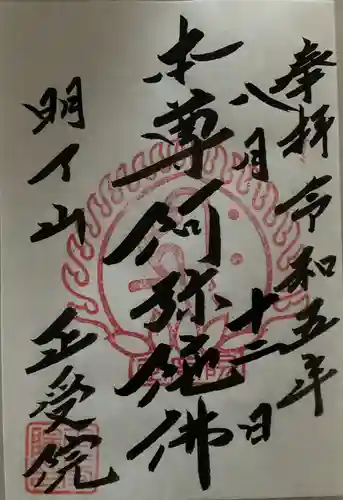 奉拝 令和五年
八月十二日
本尊阿弥陀佛
明イ山 正受院